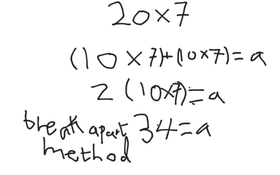 20×7
(10×7)+(10×7)=a
2(10×7)=a
break apart 34=a
method